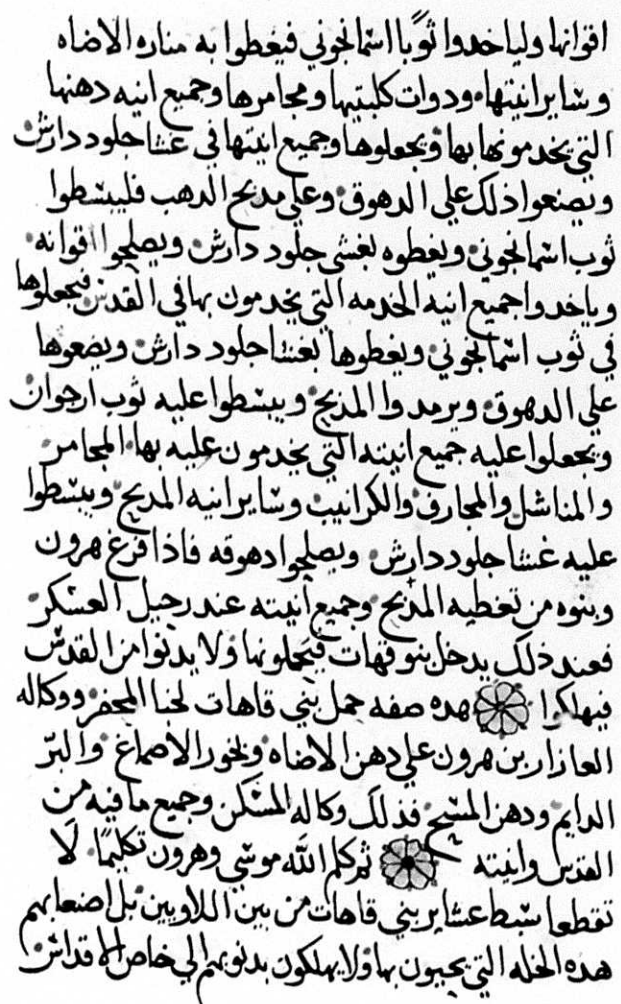 اقوانها ولياخدوا ثوبًا اسمانجوني فيغطوا به مناره الاضاه
وسايرانيتها ودوات كلبتيها ومجامرها وجميع انيه دهنها
التي يخدمونها بها ويجعلوها وجميع انيتها في غشا جلود دارش
ويصنعوا ذلك علي الدهوق وعلي مدبح الدهب فليبسطوا
ثوب اسمانجوني ويغطوه بغشي جلود دارش ويصلحوا اقوانه
وياخدوا جميع انيه الخدمه التي يخدمون بها في القدس فيجعلوها
في ثوب اسمانجوني ويغطوها بغشا جلود دارش ويضعوها
علي الدهوق ويرمدوا المدبح ويبسطوا عليه ثوب ارجوان
ويجعلوا عليه جميع انيته التي يخدمون عليه بها المجامر
والمناشل والمجارف والكرانيب وسايرانيه المدبح ويبسطوا
عليه غشا جلود دارش ويصلحوا دهوقه فاذا فرغ هرون
وبنوه من تغطيه المدبح وجميع انيته عند رحيل العسكر
فعند ذلك يدخل بنو قهات فيحملونها ولا يدنوا من القدس
فيهلكوا هده صفه حمل بني قاهات لخبا المحضر ووكاله
العازار بن هرون علي دهن الاضاه وبخور الاصماغ والبر
الدايم ودهن المسح فذلك وكاله المسكن وجميع ما فيه من
القدس وانيته ثم كلم الله موسي وهرون تكليمًا لا
تقطعا سبط عشاير بني قاهات من بين اللاويين بل اصنعا بهم
هده الخله التي يحيون بها ولا يهلكون بدنوهم الي خاص الاقداس